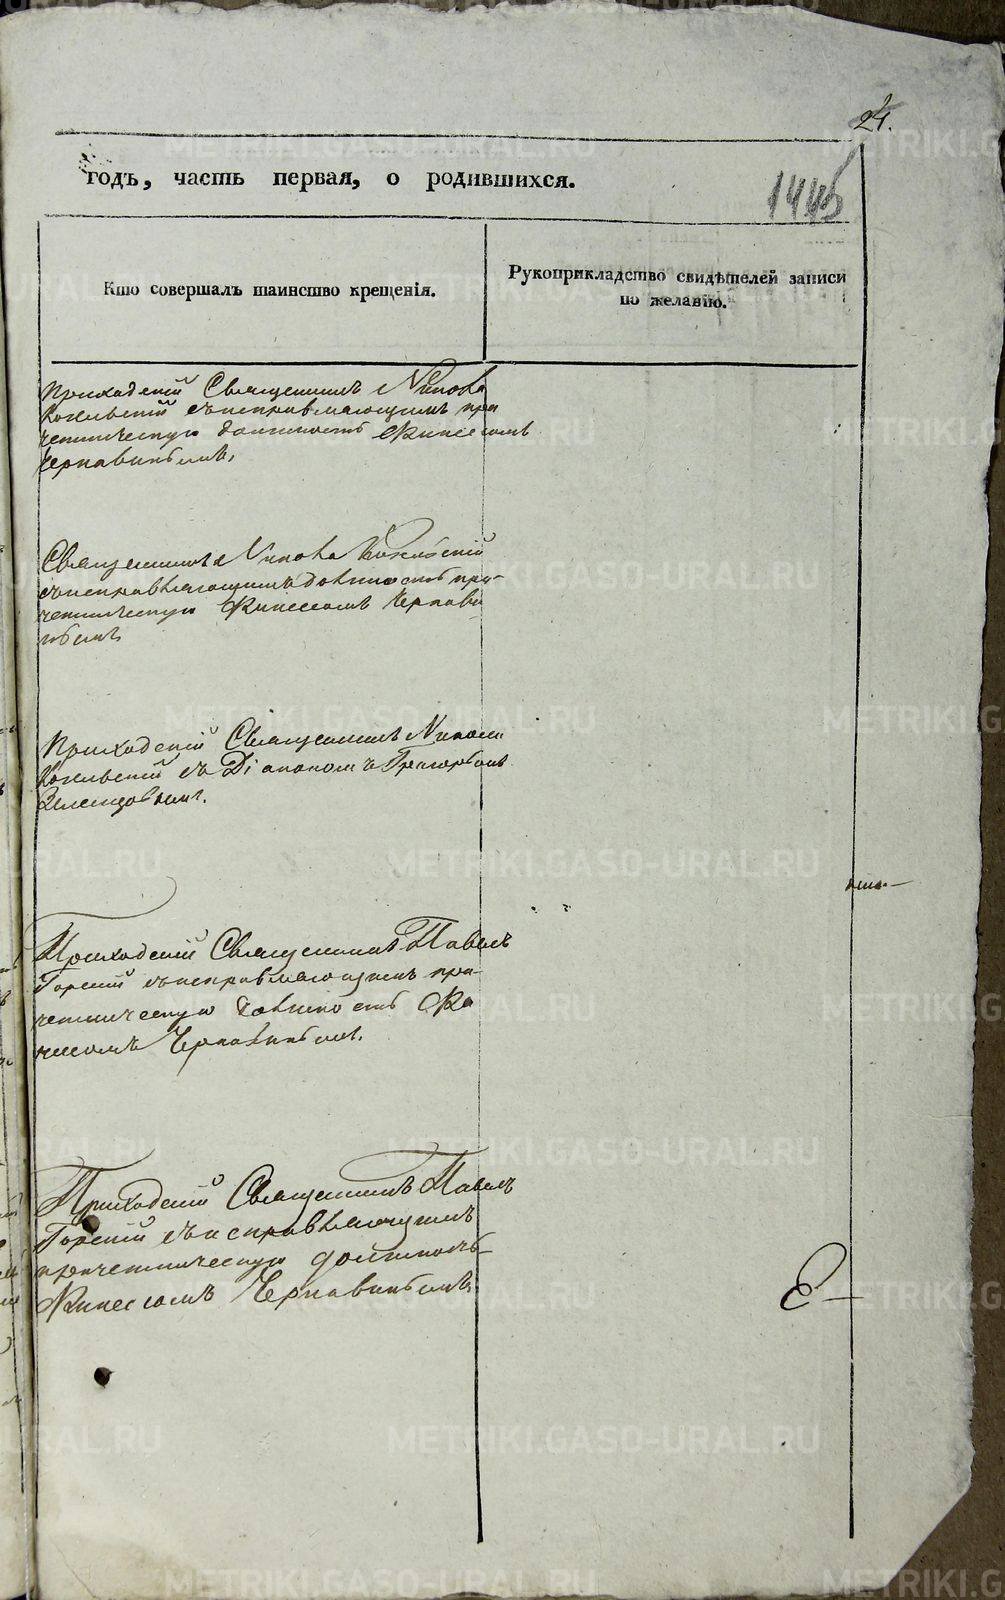 24.
годъ, часть первая, о родившихся.
1445
Кто совершалъ таинство крещенія.
Рукоприкладство свидѣтелей записи
по желанію.
Приходскій Священникъ Никола
съ исправляющимъ при
четническую должность
Чернавинымъ.
Священникъ Никола
съ исправляющимъ должность при-
четническую Чернави
нымъ
Приходскій Священникъ Никола
съ Діакономъ Григорьемъ
Приходскій Священникъ Павелъ
Горскій съ исправляющимъ при-
четническую должность
Чернавинымъ.
Приходскій Священникъ Павелъ
Горскій съ исправляющимъ
причетническую должность
Чернавинымъ.
METRIKI.GASO-URAL.RU